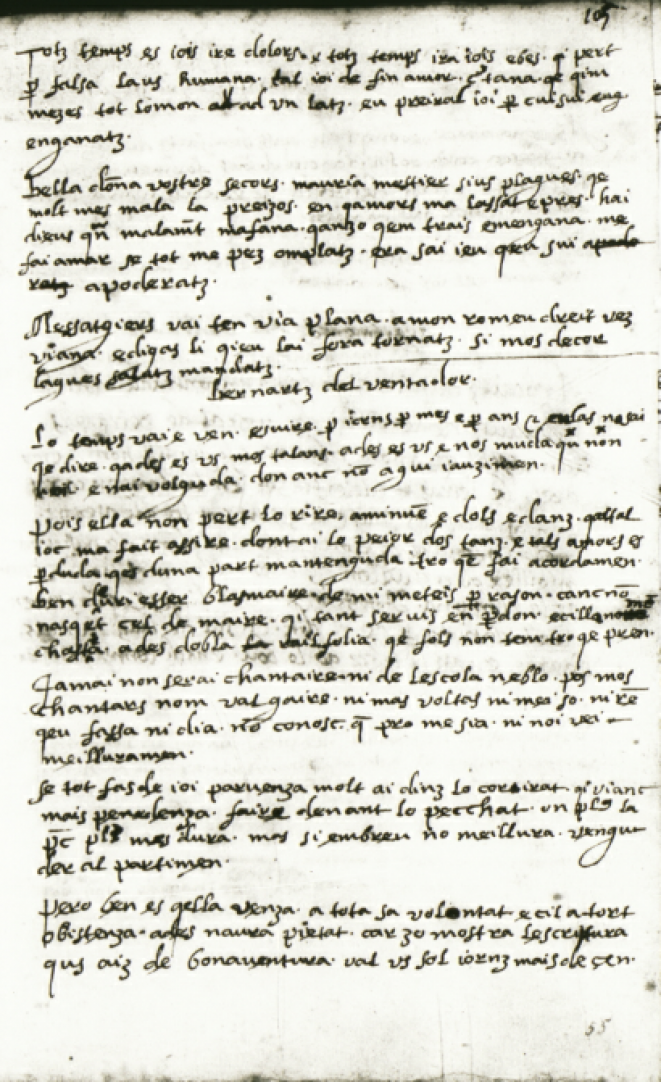 105
Totz temps es iois ire dolors. x totz temps ira iois ebes. q pert
p falsa laus humana. tal ioi de fin amor. tana. qe qim
mezes tot lomon ad vn latz. eu preiral ioi p cui sui eng
enganatz.
bella dona vostre secors. mauria mestier sius plagues. qe
molt mes mala la preizos. en qamors ma lassat e pres. hai
dieus qn malamt mafana. qanzo qem trais emengana. me
fai amar se tot me pez ompLatz. era sai ieu qeu sui apodo
ratz apoderatz.
Messatgiers vai ten via plana. amon romeu dreit vez
viana. ediqas li qieu lai fora tornatz. si mos decor
laques mandatz.
bernartz del ventador.
Lo temps vai e ven. e uire. p iorns p mes e p ans nosai
qe dire. qades es vs mos talans. ades es vs e nos muda qu non
e nai volguda. don anc no aqui iauzimen.
Pois ella non pert lo rire. aminue e dols e danz. qettal
ioc ma fait assire. dont ai lo peior dos tanz. e tals amors es
pduda. qes duna part mantenguda. tro qe fai acordamen.
ben deuri esser blasmaire. de mi meteis p rason. canc no
nasqet cel de maire. qi tant seruis en pdon. ecill
ades dobla folia. qe fols non tem tro qe pren.
Jamai non serai chantaire. ni de lescola neblo. pos mos
chantars nom val gaire. ni mas voltas ni mei so. ni re
qeu fassa ni dia. no conosc. q pro me sia. ni noi vei
meilluramen.
Se tot fas de ioi paruenza molt ai dinz lo cor irat qi vianc
mais penedenza. faire denant lo pecchat. un pls la
pc pls mes dura. mas si embreu no meillura. vengut
der al partimen.
Pero ben es qella venza. a tota sa volontat ecil a tort
obistenza. ades naura pietat. car zo mostra lescritura
qus aiz de bonauentura. val vs sol iornz mais de cen.
55